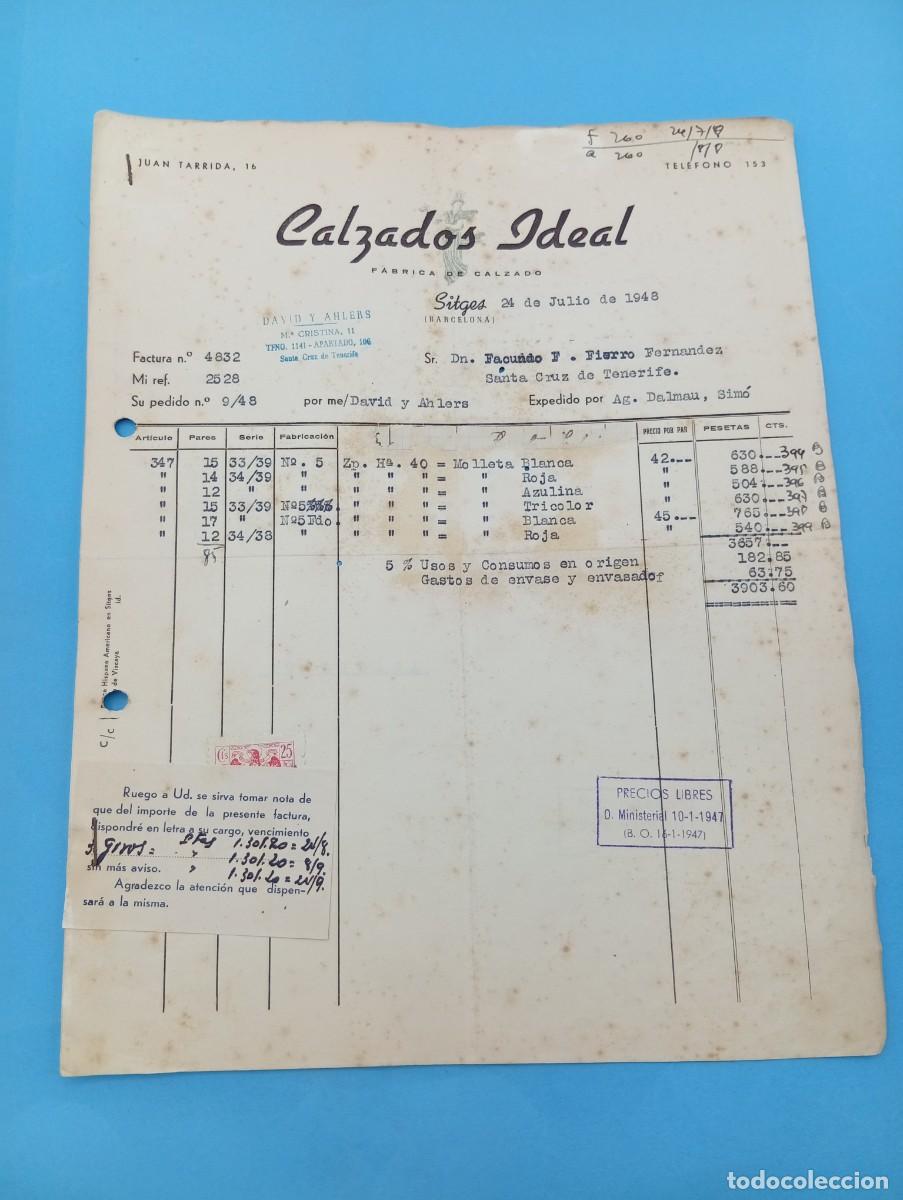 f 260 24/7/8
a 260 /8/8
JUAN TARRIDA, 16
TELÉFONO 153
Calzados Ideal
FÁBRICA DE CALZADO
Sitges 24 de Julio de 1948
(BARCELONA)
DAVID Y AHLERS
M.ª CRISTINA, 11
TFNO. 1141 - APARTADO, 106
Santa Cruz de Tenerife
Factura n.º 4832
Sr. Dn. Facundo F. Fierro Fernandez
Mi ref. 2528
Santa Cruz de Tenerife.
Su pedido n.º 9/48 por me/David y Ahlers Expedido por Ag. Dalmau, Simó
Artículo Pares Serie Fabricación PRECIO POR PAR PESETAS CTS.
347 15 33/39 Nº. 5 Zp. Hª. 40 = Molleta Blanca 42.-- 630.-- 394 B
" 14 34/39 " " " " = " Roja " 588.-- 395 B
" 12 " " " " " = " Azulina " 504.-- 396 B
" 15 33/39 Nº5 " " " = " Tricolor " 630.-- 397 B
" 17 " Nº5 Fdo. " " " = " Blanca 45.-- 765.-- 398 B
" 12 34/38 " " " " = " Roja " 540.-- 399 B
85 3657.--
5 % Usos y Consumos en origen 182.85
Gastos de envase y envasador 63.75
3903.60
C/c
Hispano Americano en Sitges
de Vizcaya id.
Cts 25
Ruego a Ud. se sirva tomar nota de
que del importe de la presente factura,
dispondré en letra a su cargo, vencimiento
3 giros = Ptas 1.301.20 = 24/8.
" 1.301.20 = 8/9.
sin más aviso. " 1.301.20 = 24/9.
Agradezco la atención que dispen-
sará a la misma.
PRECIOS LIBRES
D. Ministerial 10-1-1947
(B. O. 16-1-1947)
todocoleccion